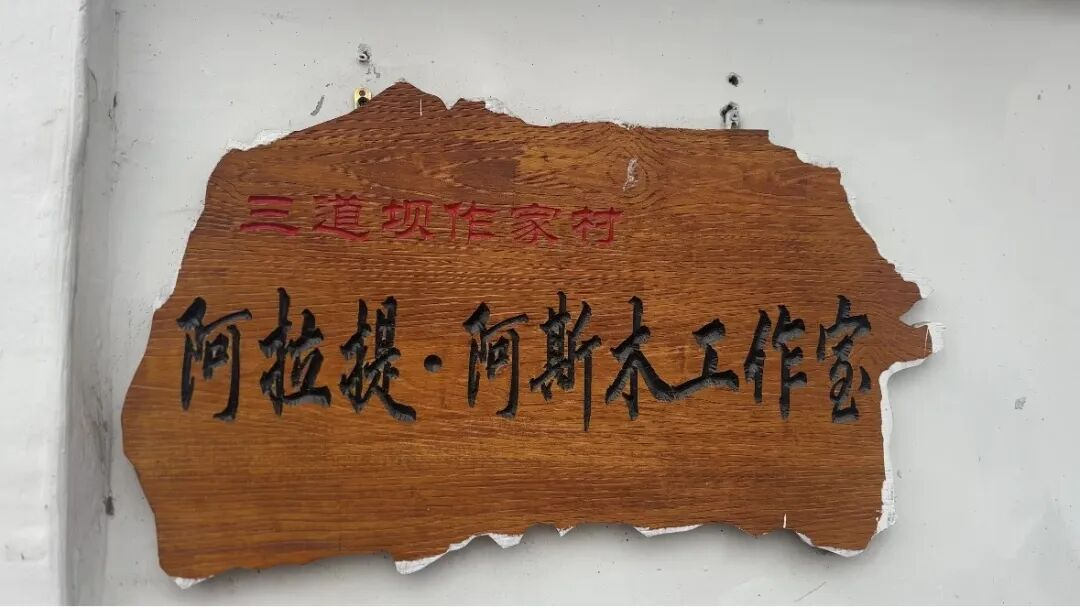 三道坝作家村
阿拉提·阿斯木工作室